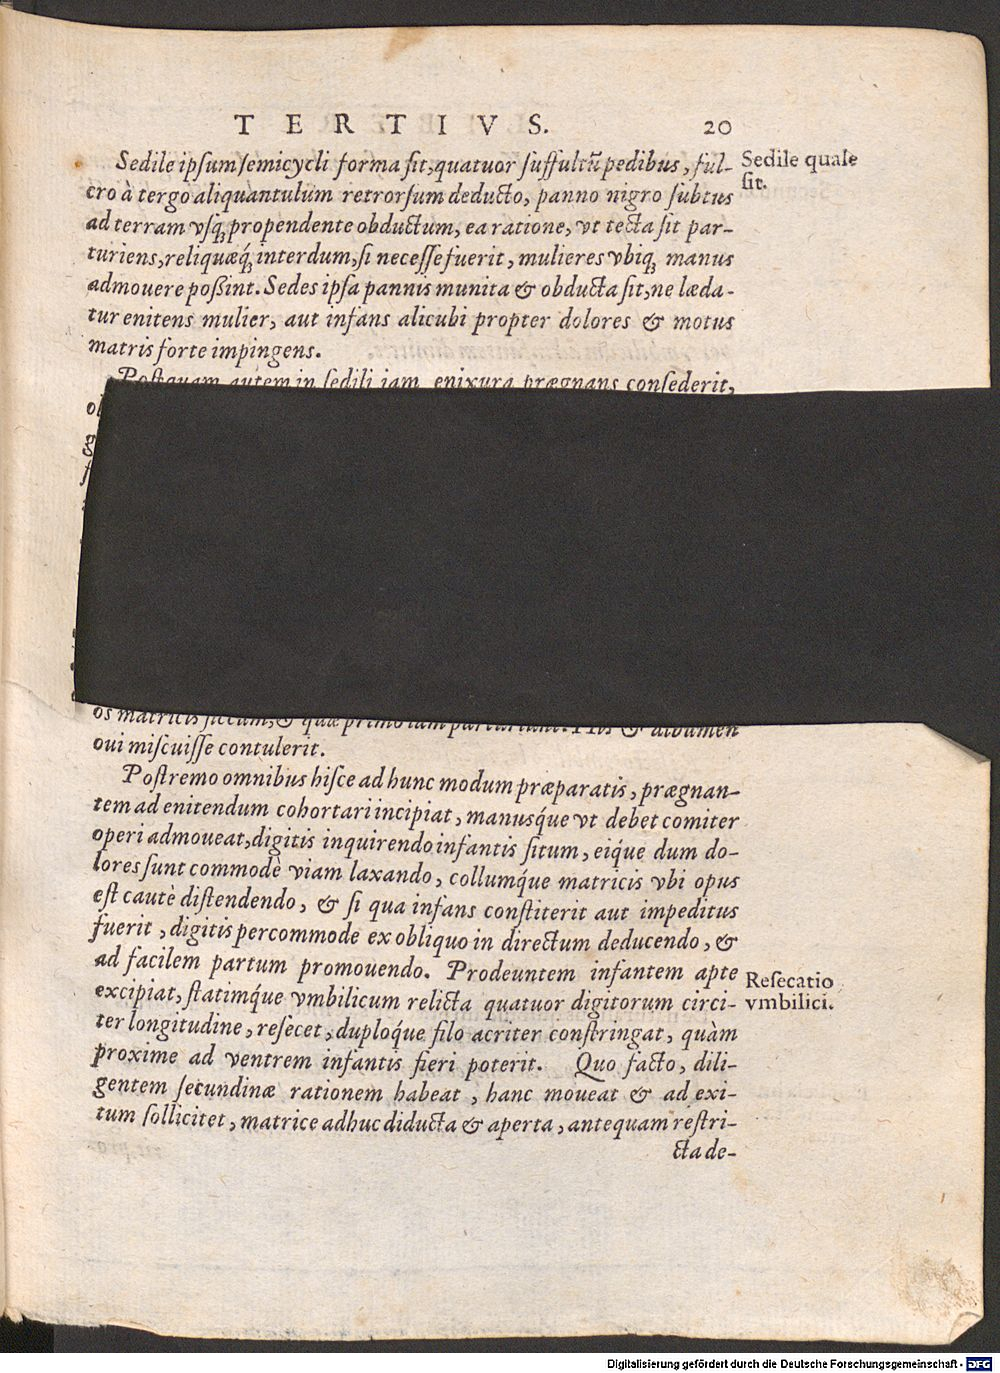 TERTIVS. 20
Sedile ipsum semicycli forma sit, quatuor suffultū pedibus, ful-
cro à tergo aliquantulum retrorsum deducto, panno nigro subtus
ad terram vsq; propendente obductum, ea ratione, vt tecta sit par-
turiens, reliquæq́; interdum, si necesse fuerit, mulieres vbiq; manus
admouere poßint. Sedes ipsa pannis munita & obducta sit, ne læda-
tur enitens mulier, aut infans alicubi propter dolores & motus
matris forte impingens.
Sedile quale
sit.
Postquam autem in sedili iam enixura prægnans consederit,
os matricis siccum, & quæ primo iam parturiunt. His & albumen
oui miscuisse contulerit.
Postremo omnibus hisce ad hunc modum præparatis, prægnan-
tem ad enitendum cohortari incipiat, manusq́ue vt debet comiter
operi admoueat, digitis inquirendo infantis situm, eiq́ue dum do-
lores sunt commodè viam laxando, collumq́ue matricis vbi opus
est cautè distendendo, & si qua infans constiterit aut impeditus
fuerit, digitis percommode ex obliquo in directum deducendo, &
ad facilem partum promouendo. Prodeuntem infantem apte
excipiat, statimq́ue vmbilicum relicta quatuor digitorum circi-
ter longitudine, resecet, duploq́ue filo acriter constringat, quàm
proxime ad ventrem infantis fieri poterit. Quo facto, dili-
gentem secundinæ rationem habeat, hanc moueat & ad exi-
tum sollicitet, matrice adhuc diducta & aperta, antequam restri-
cta de-
Resecatio
vmbilici.
Digitalisierung gefördert durch die Deutsche Forschungsgemeinschaft - DFG